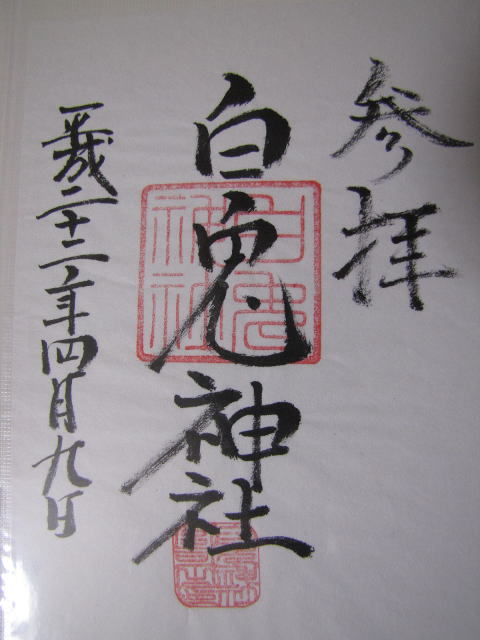 参拝
白兎神社
平成二十二年四月九日
白兎神社